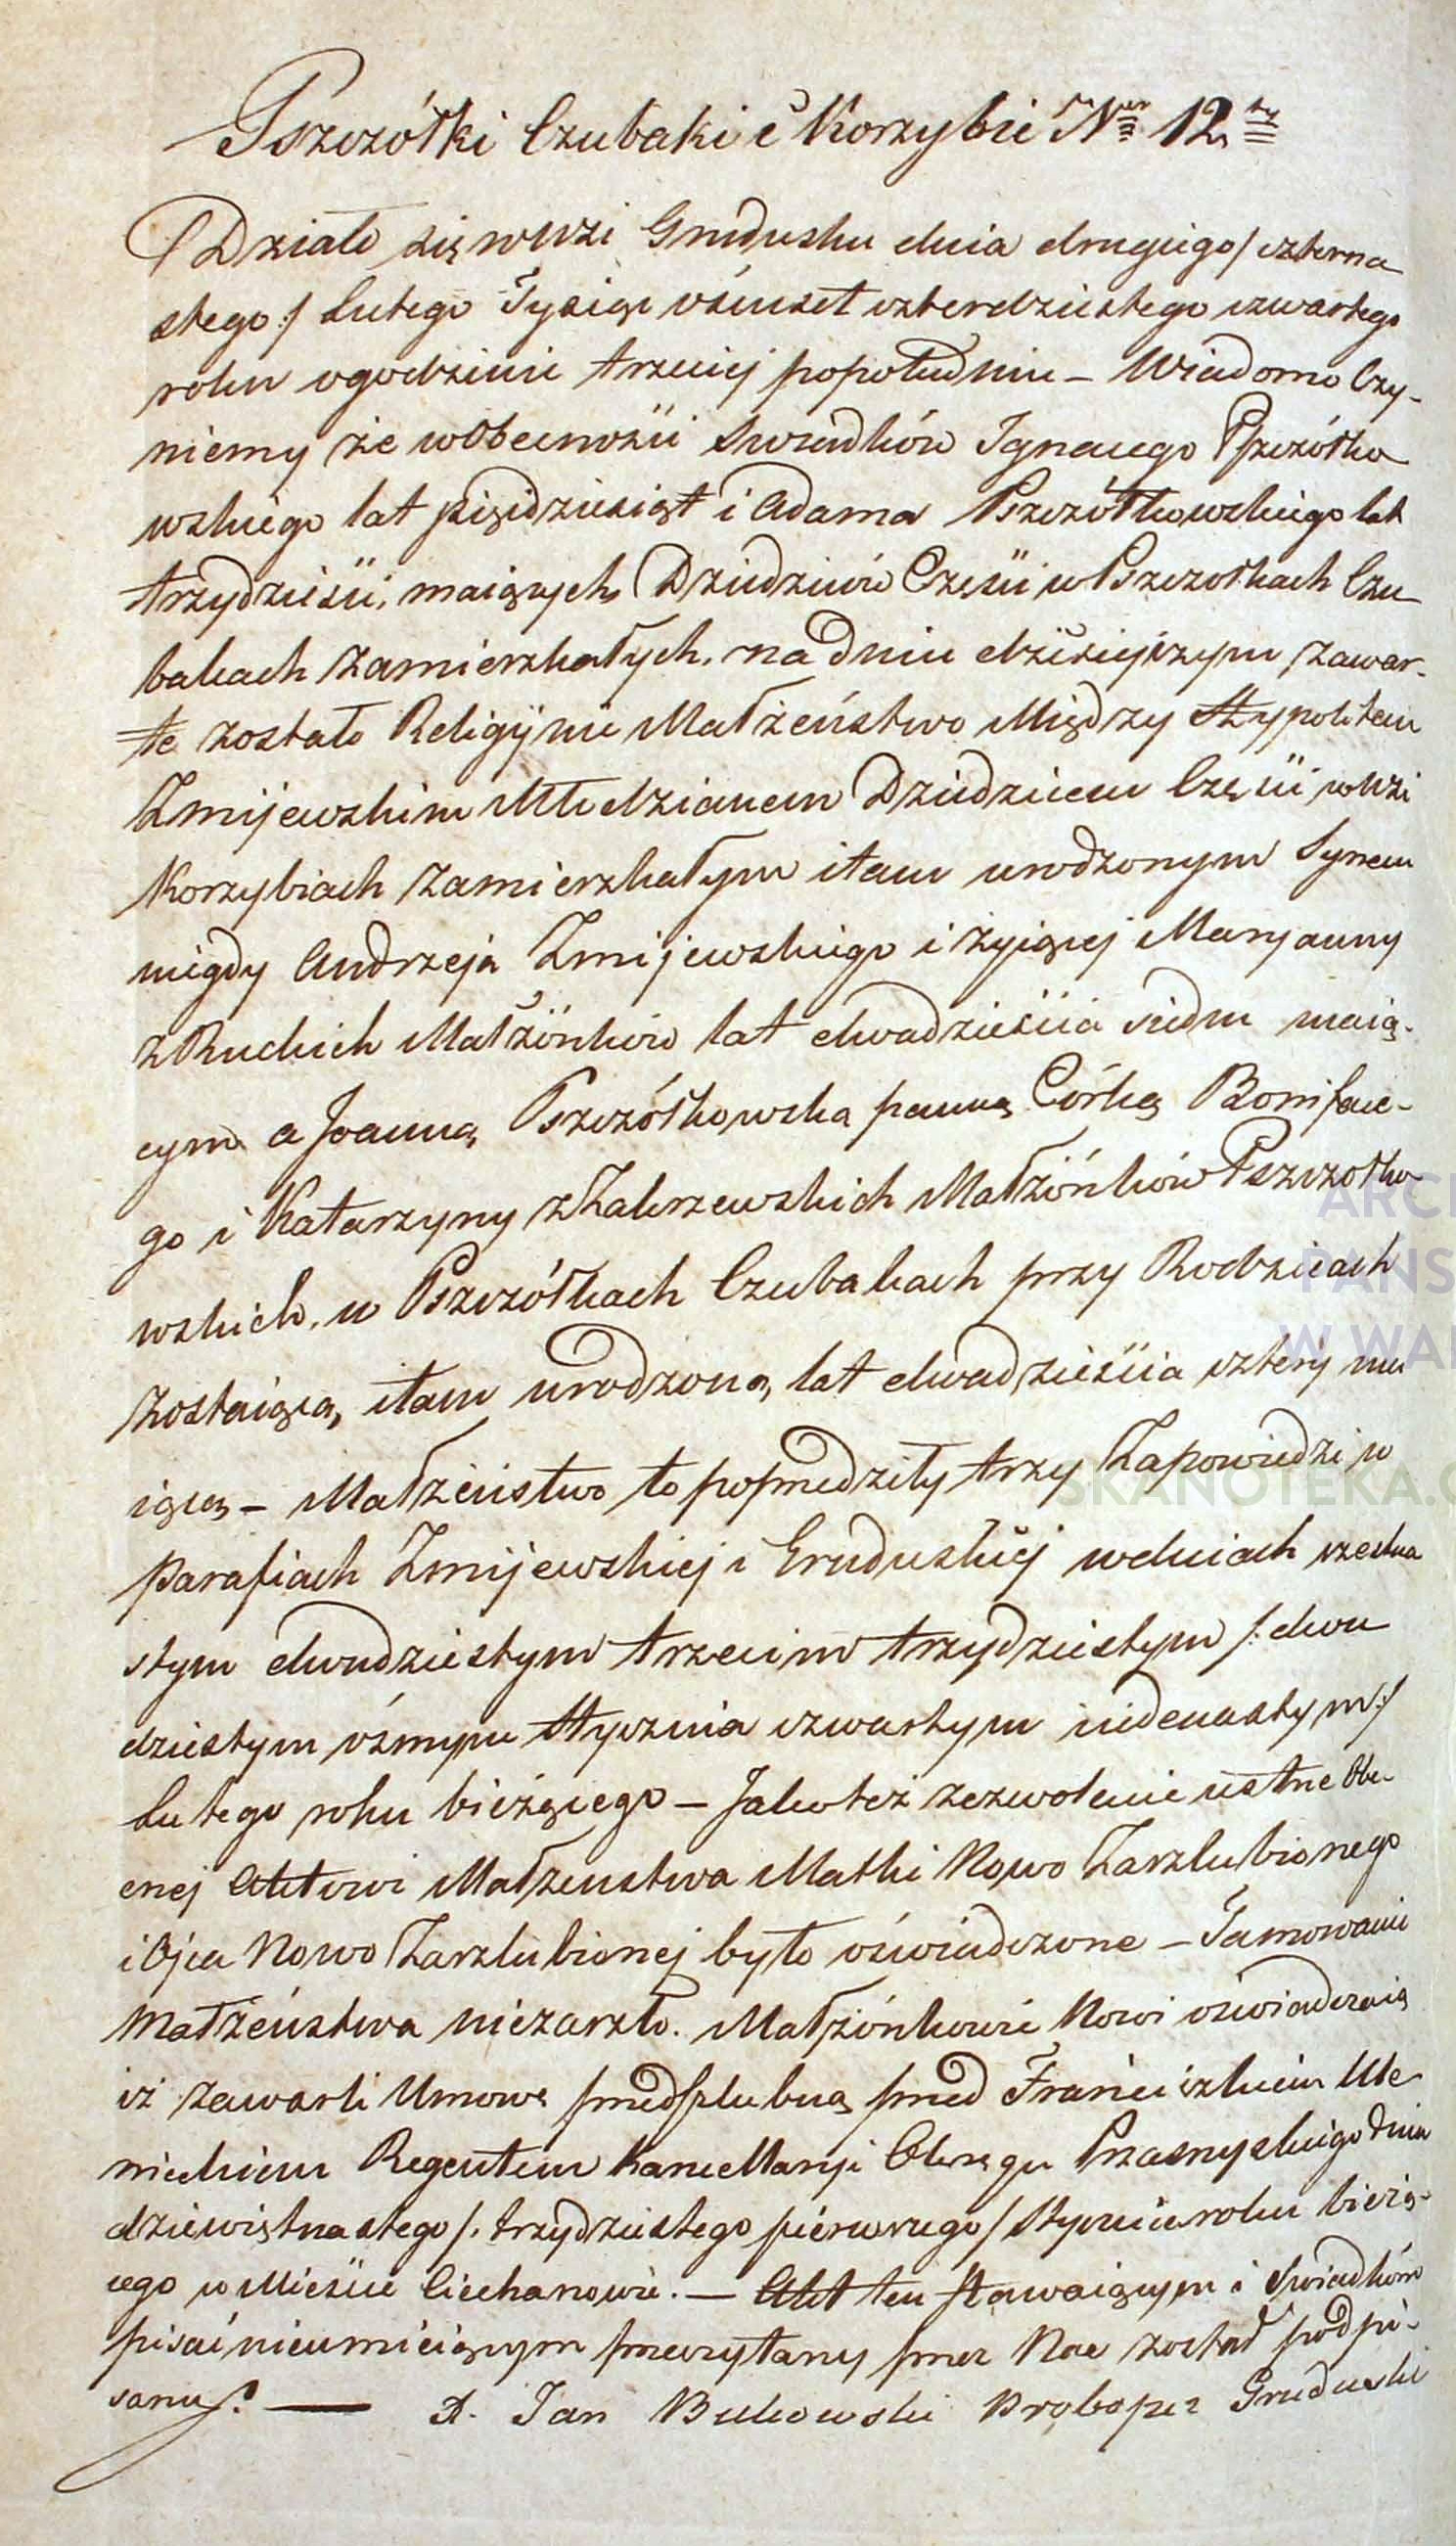 Pszczółki Czubaki i Korzybie Ner 12ty
Działo się w Wsi Grudusku dnia drugiego / czterna
stego :/ Lutego Tysiąc ósmset czterdziestego czwartego
roku o godzinie trzeciej popołudniu – Wiadomo Czy-
niemy że w Obecności Swiadków Ignacego Pszczółko
wskiego lat pięćdziesiąt i Adama Pszczółkowskiego lat
trzydzieści, maiących Dziedziców Części w Pszczółkach Czu
bakach zamieszkałych, na dniu dzisieyszym zawar-
te zostało Religijnie Małżeństwo Między Hypolitem
Zmijewskim Młodzianem Dziedzicem Części w Wsi
Korzybiach zamieszkałym i tam urodzonym Synem
niegdy Andrzeja Zmijewskiego i żyiącej Maryanny
z Ruckich Małżonków lat dwadzieścia siedm maią-
cym a Joanną Pszczółkowską panną Córką Boniface-
go i Katarzyny z Zakrzewskich Małżonków Pszczółko
wskich, w Pszczółkach Czubakach przy Rodzicach
zostaiącą, i tam urodzoną, lat dwadzieścia cztery ma
iącą – Małżeństwo to poprzedziły trzy Zapowiedzi w
parafiach Zmijewskiej i Gruduskiej w dniach szesna
stym dwudziestym trzecim trzydziestym /: dwu
dziestym ósmym Stycznia czwartym iedenastym :/
Lutego roku bieżącego – Jako też zezwolenie ustne Obe-
cnej Aktowi Małżenstwa Matki Nowo Zaszlubionego
i Ojca Nowo Zaszlubionej było oświadczone – Tamowanie
Małżeństwa nie zaszło. Małżonkowie Nowi oświadczaią
iż zawarli Umowę przedszlubną przed Franciszkiem Ule
nieckiem Regentem Kancellaryi Okręgu Przasnyskiego dnia
dziewiętnastego /: trzydziestego pierwszego / Stycznia roku bieżą-
cego w Mieście Ciechanowie. – Akt ten Stawaiącym i Swiadkóm
pisać nieumieiącym przeczytany przez Nas został podpi-
sany. — X. Jan Bukowski Proboszcz Gruduski